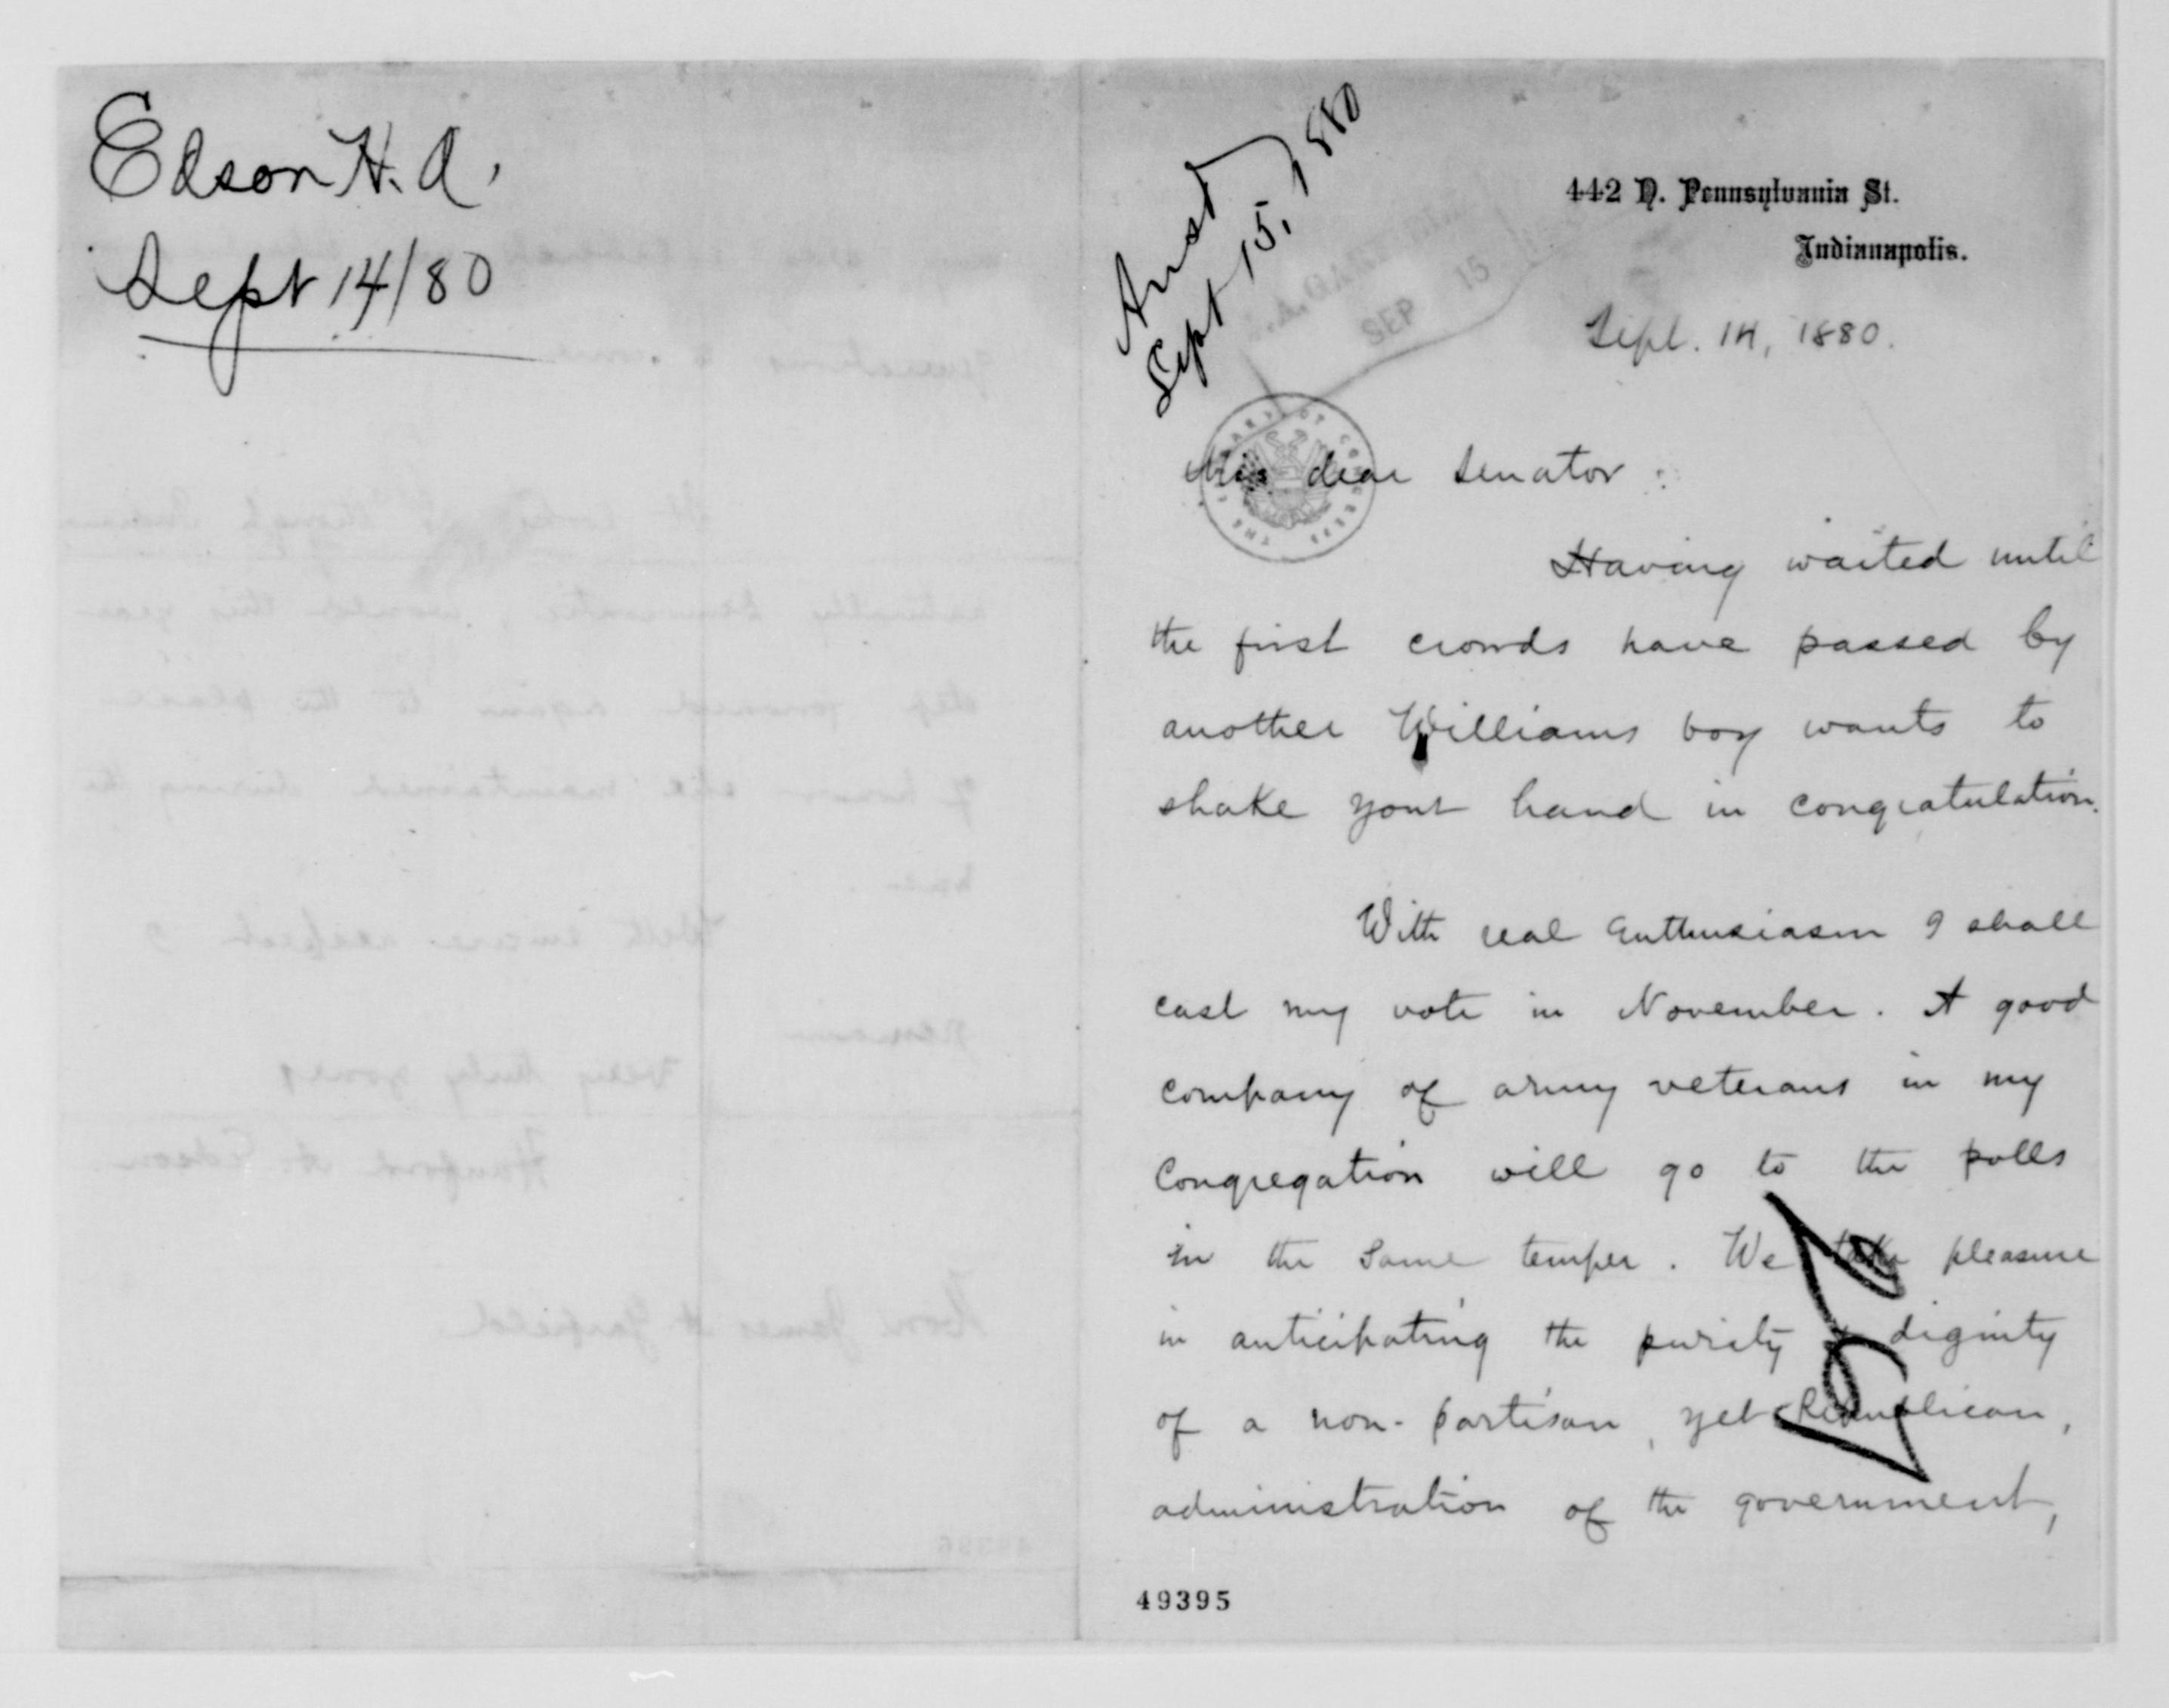 Edson H. A.
Sept 14/80
Ansd
Sept 15, 1880
SEP 15
442 N. Pennsylvania St.
Indianapolis.
Sept. 14, 1880.
THE LIBRARY OF CONGRESS
My dear Senator:
Having waited until
the first crowds have passed by
another Williams boy wants to
shake your hand in congratulation.
With real enthusiasm I shall
cast my vote in November. A good
company of army veterans in my
Congregation will go to the polls
in the same temper. We take pleasure
in anticipating the purity & dignity
of a non-partisan, yet Republican,
administration of the government,
49395